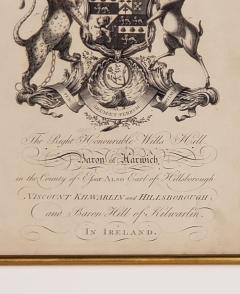 The Right Honourable Wills Hill
Baron of Harwich,
in the County of Essex Also Earl of Hillsborough
Viscount Kilwarlin and Hillsborough
and Baron Hill of Kilwarlin,
In Ireland.